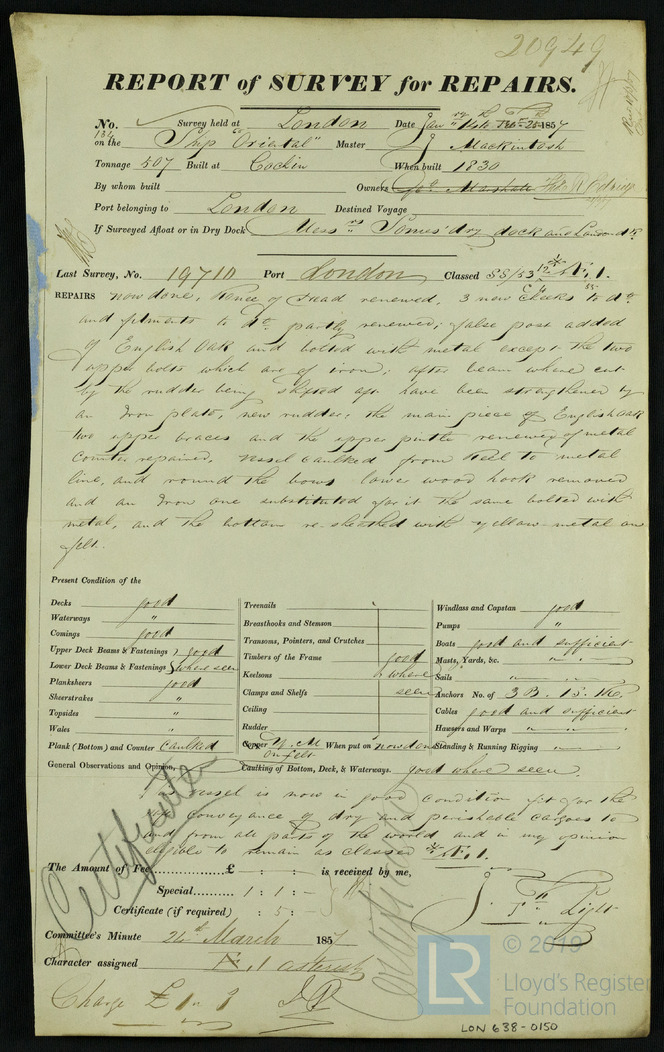 20949
REPORT of SURVEY for REPAIRS.
No. Survey held at London Date Jany 14th 1857
134 on the Ship "Oriental" Master J Mackintosh
Tonnage 507 Built at Cochin When built 1830
By whom built Owners
Port belonging to London Destined Voyage
If Surveyed Afloat or in Dry Dock Messrs Somes' dry dock and London dk
Last Survey, No. 19710 Port London Classed
REPAIRS now done, renewed, 3 new Cheeks to do
and fitments to do partly renewed; false post added
of English Oak and bolted with metal except the two
upper bolts which are of iron; after beam where cut
by the rudder being shifted aft have been strengthened by
an Iron plate, new rudder; the main piece of English Oak
two upper braces and the upper pintle renewed of metal
Counter repaired, Vessel Caulked from keel to metal
line, and round the bows lower wood hook removed
and an Iron one substituted for it the same bolted with
metal, and the bottom re-sheathed with yellow-metal on
felt.
Present Condition of the
Decks good
Waterways "
Comings good
Upper Deck Beams & Fastenings } good
Lower Deck Beams & Fastenings } where seen
Planksheers good
Sheerstrakes "
Topsides "
Wales "
Plank (Bottom) and Counter Caulked
Treenails
Breasthooks and Stemson
Transoms, Pointers, and Crutches
Timbers of the Frame good
Keelsons where
Clamps and Shelfs seen
Ceiling
Rudder
Copper Y.M on felt When put on now done
Windlass and Capstan good
Pumps "
Boats good and sufficient
Masts, Yards, &c. " "
Sails " "
Anchors No. of 3 B. 1 S.
Cables good and sufficient
Hawsers and Warps " "
Standing & Running Rigging "
General Observations and Opinion,
Caulking of Bottom, Deck, & Waterways. good where seen.
Vessel is now in good Condition fit for the
safe Conveyance of dry and perishable Cargoes to
and from all parts of the world and in my opinion
eligible to remain as classed
Certificate
The Amount of Fee £ - : - : - is received by me,
Special 1 : 1 : -
Certificate (if required) : 5 : -
Committee's Minute 24th March 1857
Character assigned
Charge £
© 2019
Lloyd's Register
Foundation
LR
LON 638-0150